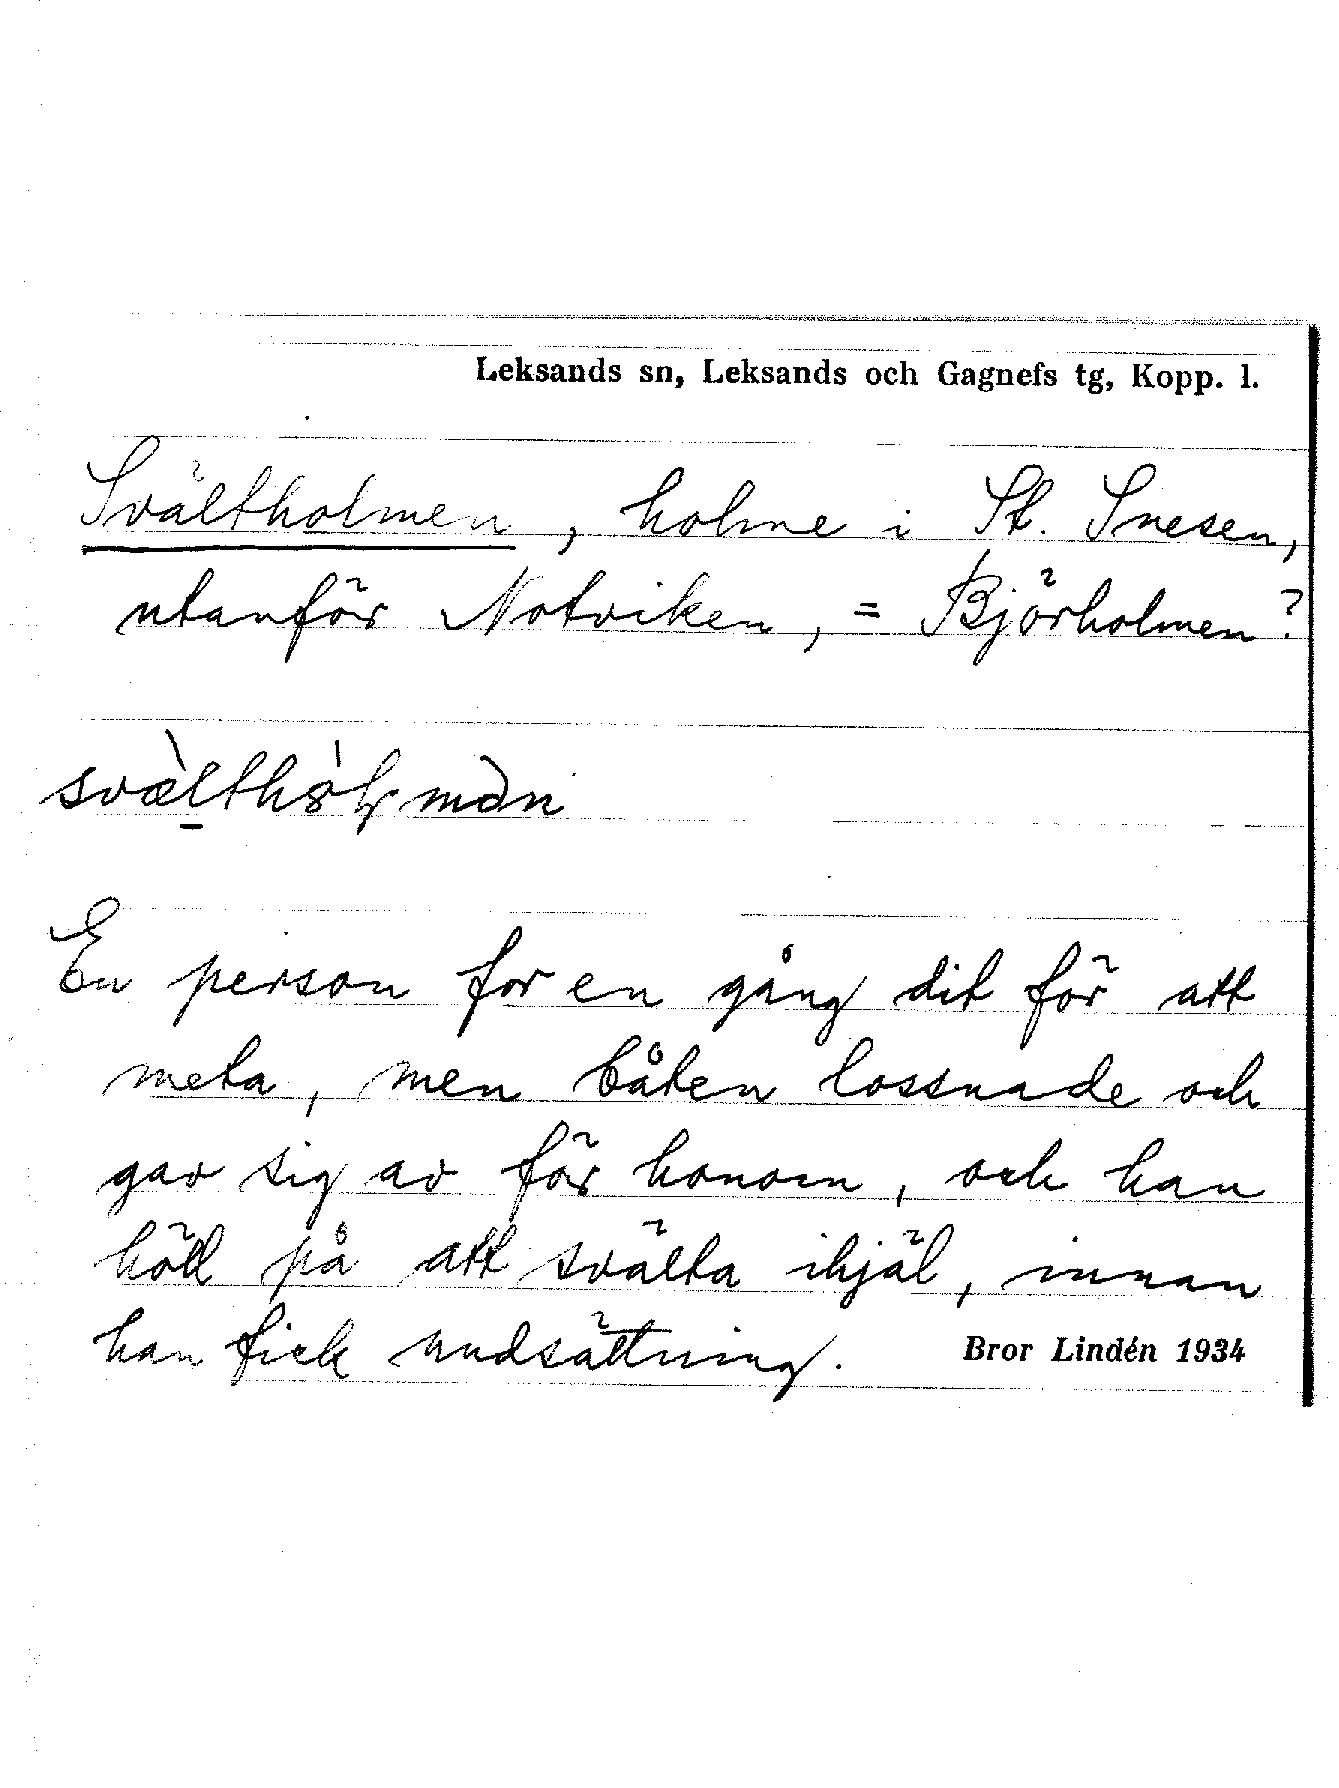 Leksands sn, Leksands och Gagnefs tg, Kopp. l.
Svältholmen, holme i St. Snesen,
utanför Notviken, = Björholmen?
En person for en gång dit för att
meta, men båten lossnade och
gav sig av för honom, och han
höll på att svälta ihjäl, innan
han fick undsättning. Bror Lindén 1934